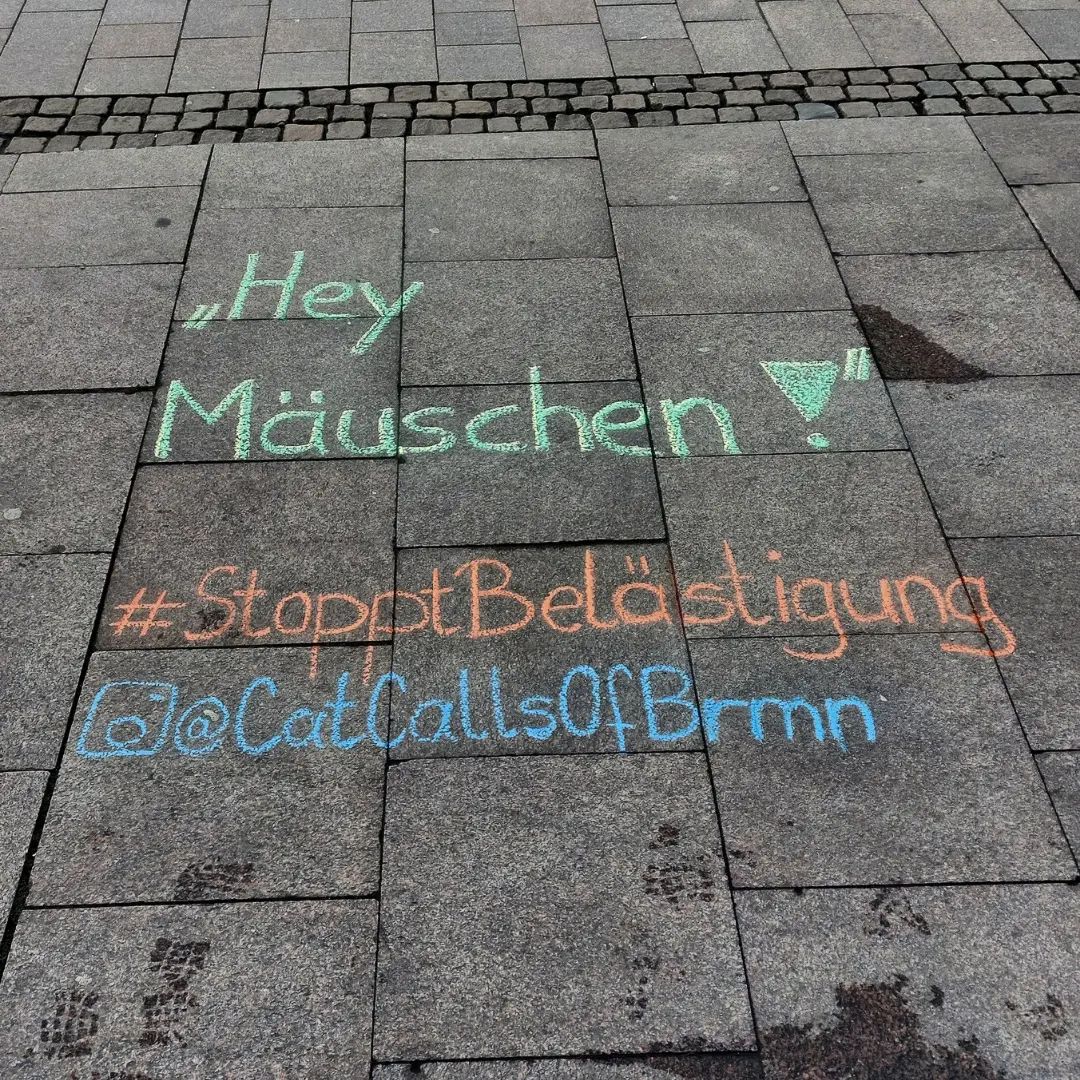 „Hey
Mäuschen!"
#StopptBelästigung
@CatCallsOfBrmn